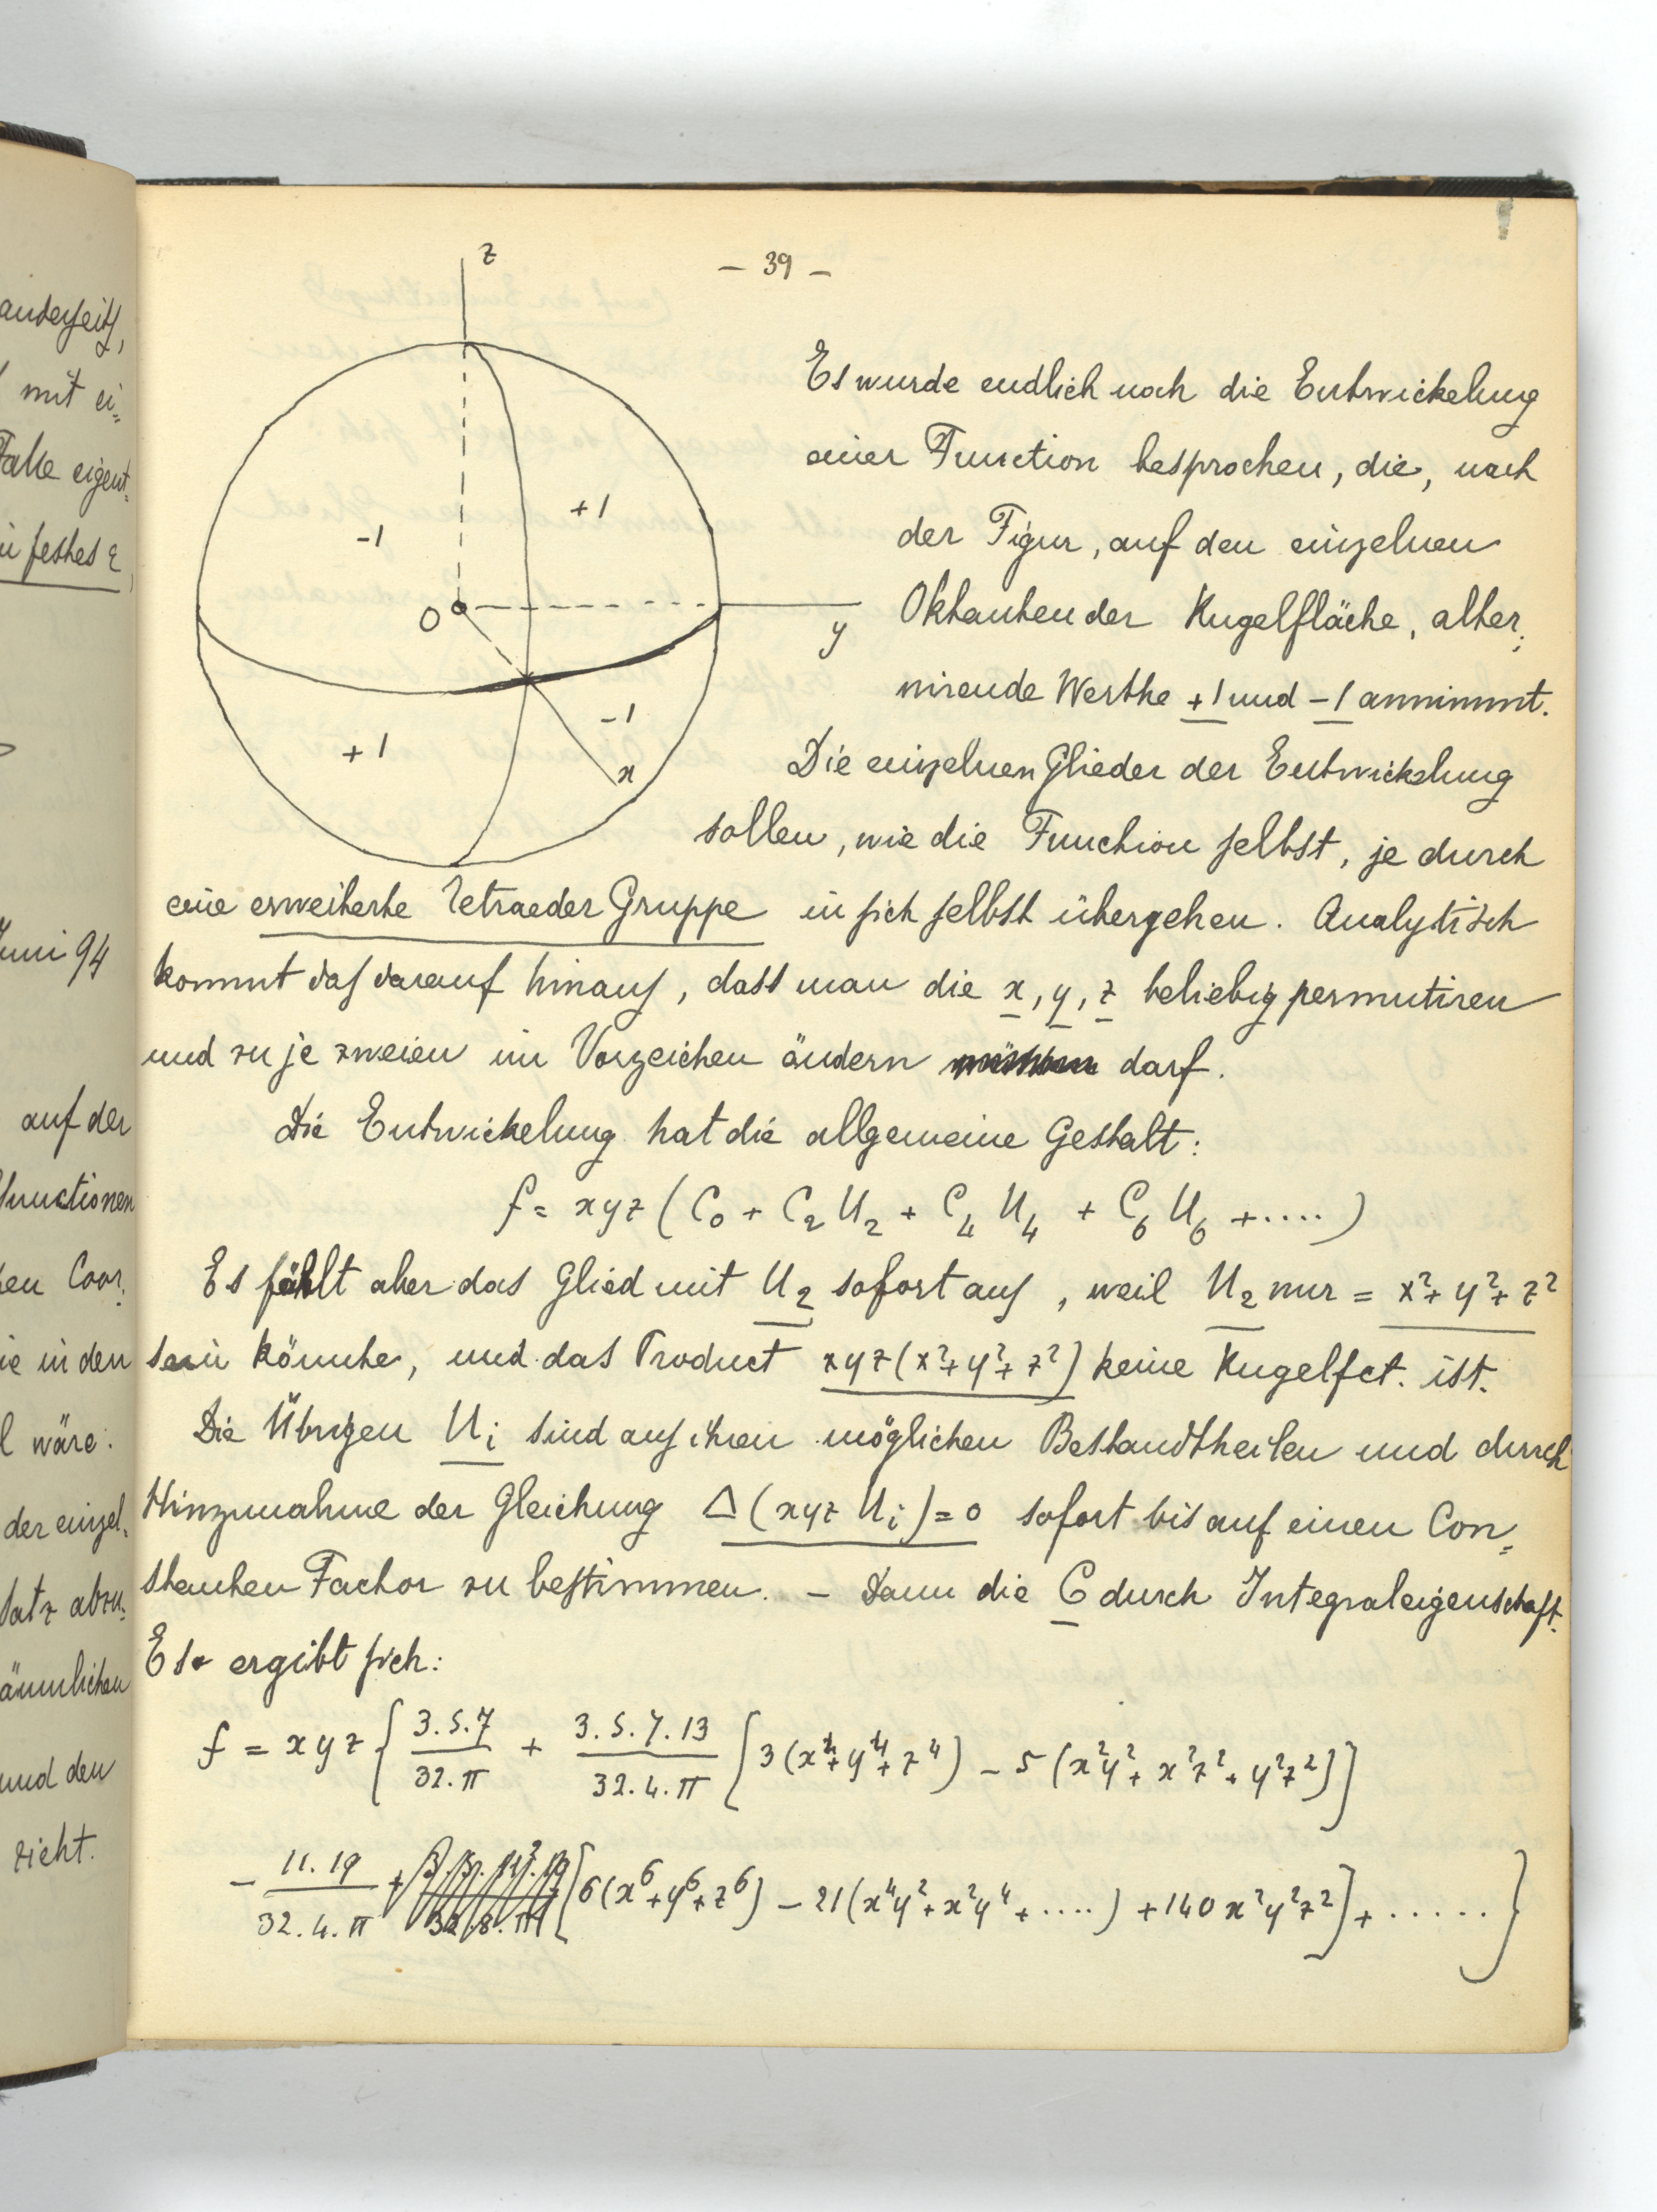 anderseits,
mit ei=
Falle eigent=
festes ε
Juni 94
auf der
functionen
Coor=
ie in den
wäre.
der einzel=
satz abzu=
und den
zieht.
- 39 -
z
-1
+1
O
y
+1
-1
x
Es wurde endlich noch die Entwickelung
einer Function besprochen, die, nach
der Figur, auf den einzelnen
Oktanten der Kugelfläche, alter=
nirende Werthe +1 und -1 annimmt.
Die einzelnen Glieder der Entwickelung
sollen, wie die Function selbst, je durch
eine erweiterte Tetraeder Gruppe in sich selbst übergehen. Analytisch
kommt das darauf hinaus, dass man die x, y, z beliebig permutiren
und zu je zweien im Vorzeichen ändern darf.
Die Entwickelung hat die allgemeine Gestalt:
f = xyz (C₀ + C₂ U₂ + C₄ U₄ + C₆ U₆ + ....)
Es fällt aber das Glied mit U₂ sofort aus, weil U₂ nur = x² + y² + z²
sein könnte, und das Product xyz(x² + y² + z²) keine Kugelfct. ist.
Die Übrigen Uᵢ sind aus ihren möglichen Bestandtheilen und durch
Hinzunahme der Gleichung Δ(xyz Uᵢ) = 0 sofort bis auf einen Con=
stanten Factor zu bestimmen. - Dann die C durch Integraleigenschaft.
Es ergibt sich:
f = xyz { 3.5.7 / 32.π + 3.5.7.13 / 32.4.π [3(x⁴ + y⁴ + z⁴) - 5(x²y² + x²z² + y²z²)]
- 11.19 / 32.4.π [6(x⁶ + y⁶ + z⁶) - 21(x⁴y² + x²y⁴ + ....) + 140 x²y²z²] + ..... }